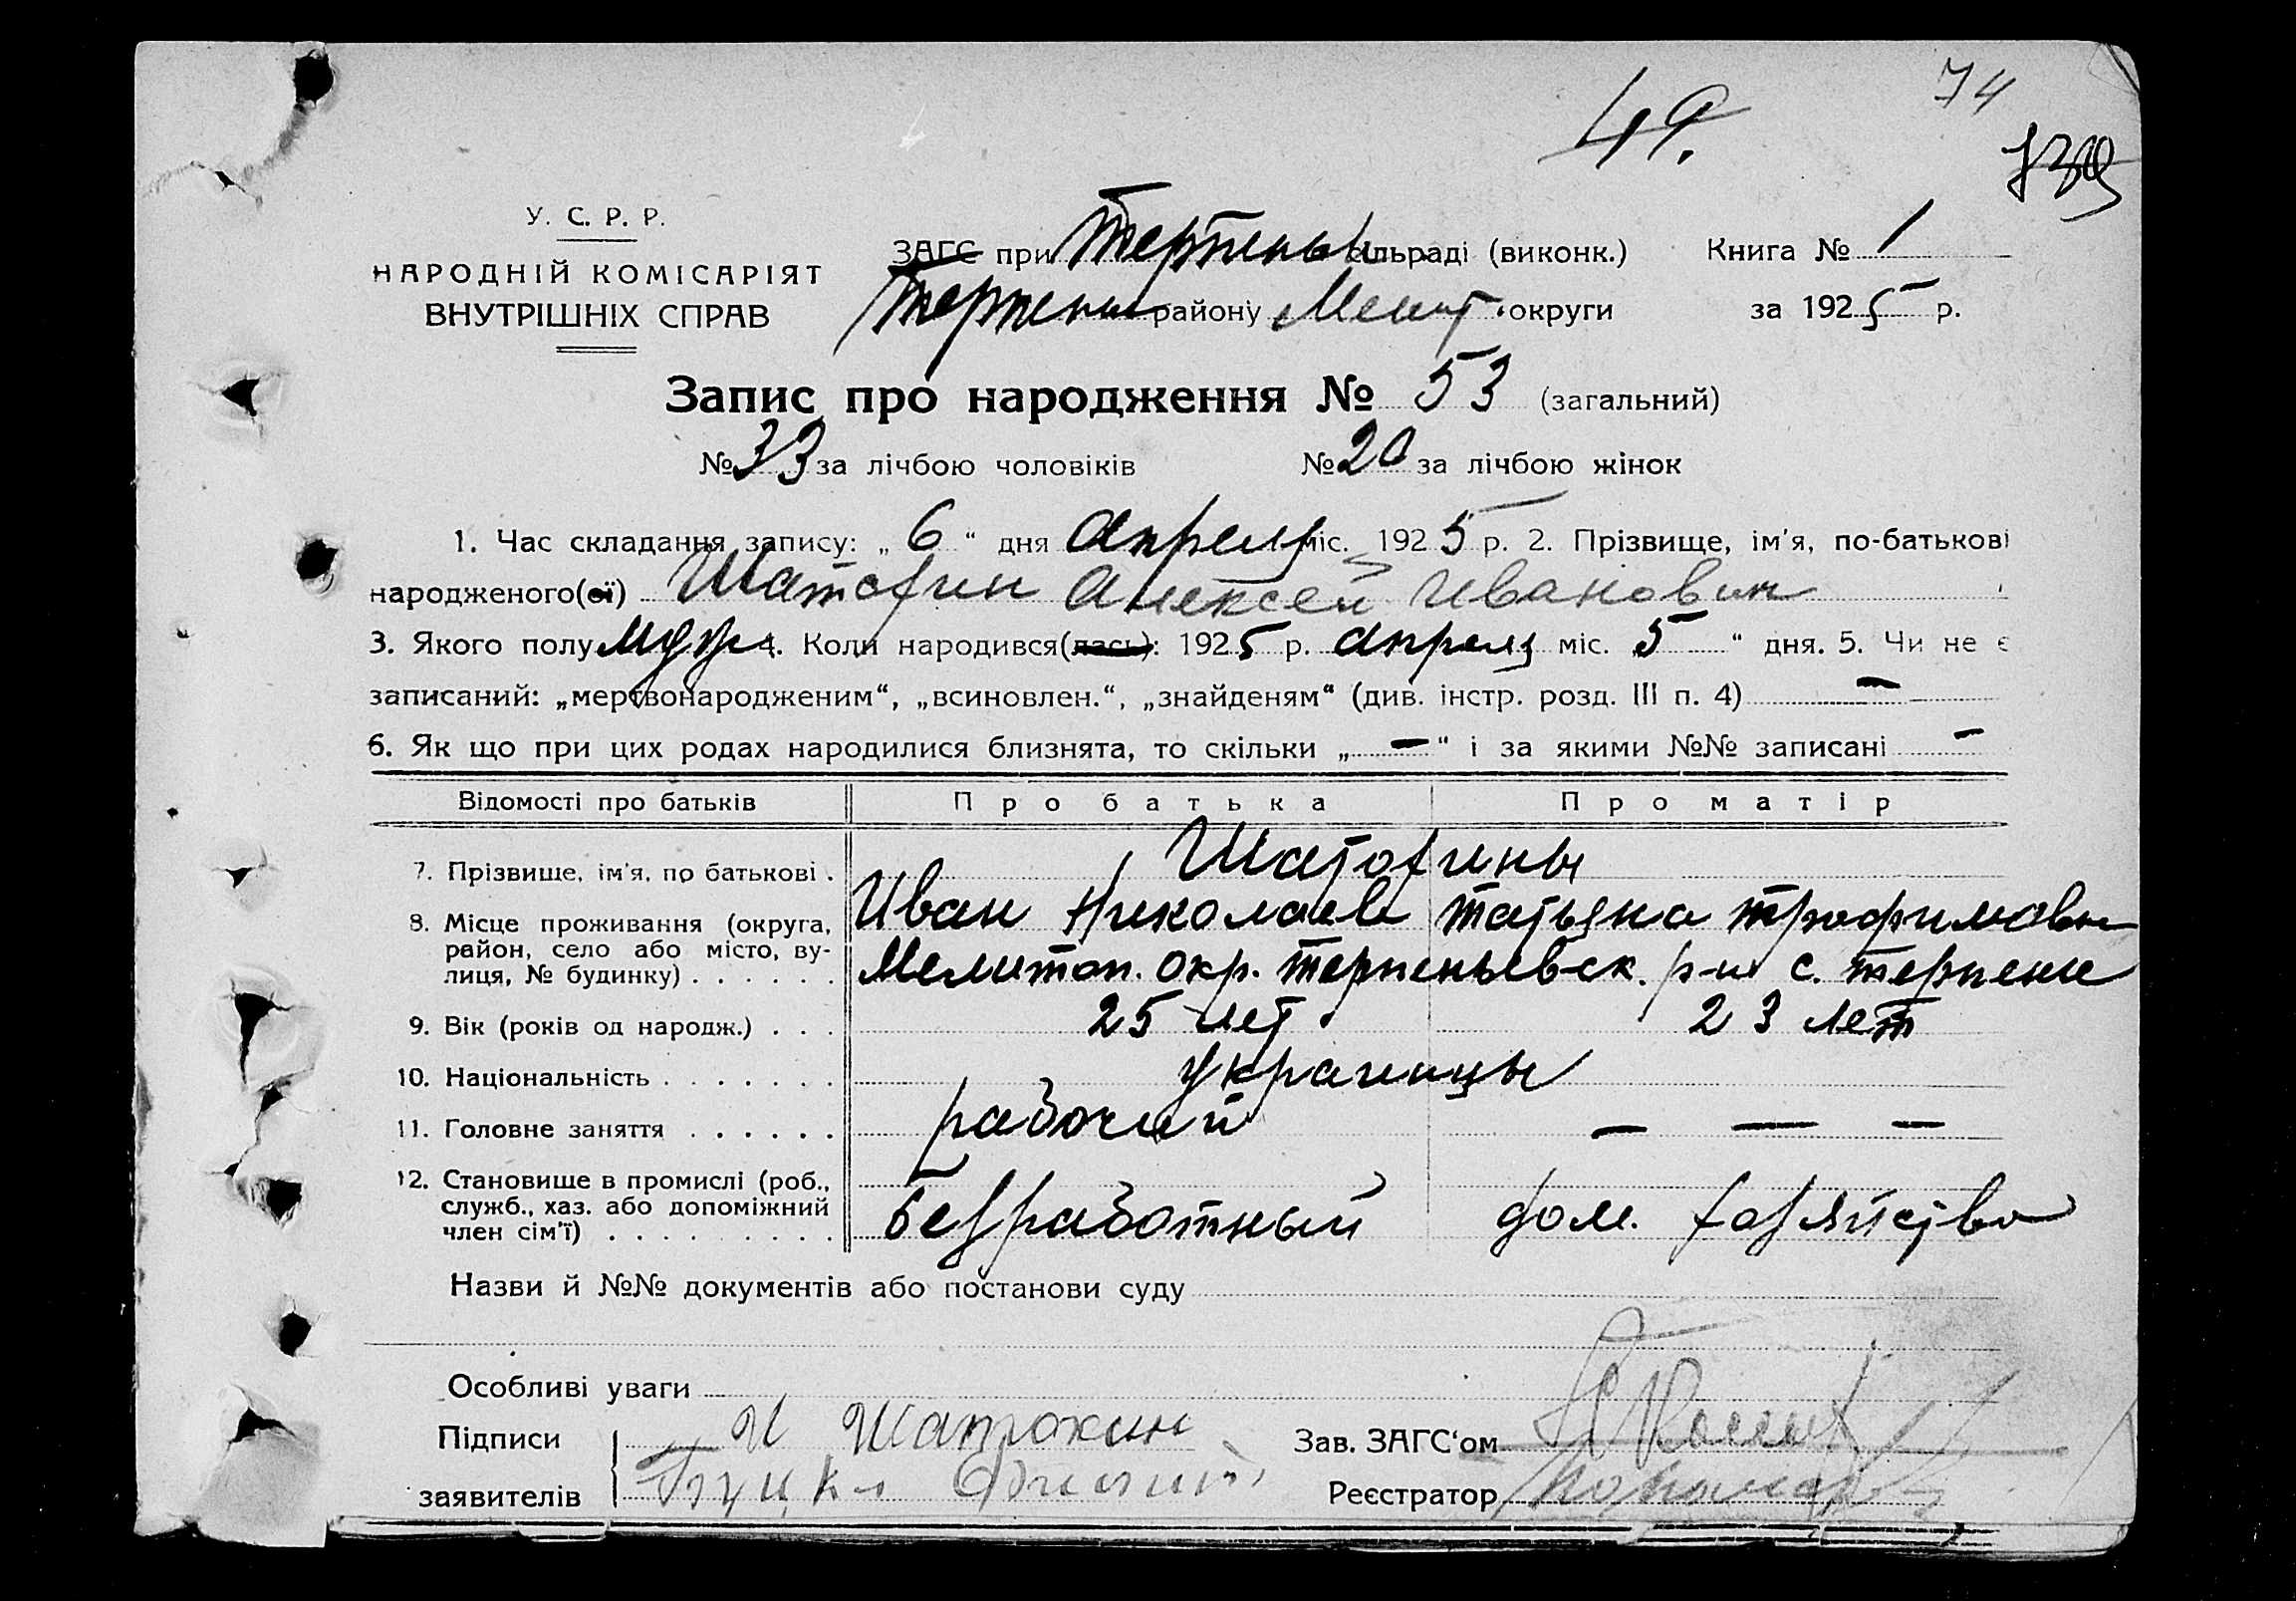 49.
74
У. С. Р. Р.
НАРОДНІЙ КОМІСАРІЯТ
ВНУТРІШНІХ СПРАВ
ЗАГС при Терпень сільраді (виконк.) Книга № 1
Терпени району Мелит. округи за 1925 р.
Запис про народження № 53 (загальний)
№ 33 за лічбою чоловіків № 20 за лічбою жінок
1. Час складання запису: „ 6 “ дня Апреля міс. 1925 р. 2. Прізвище, ім'я, по-батькові
народженого(ої) Шатохин Алексей Иванович
3. Якого полу Муж 4. Коли народився(лась): 1925 р. Апреля міс. „ 5 “ дня. 5. Чи не є
записаний: „мертвонародженим“, „всиновлен.“, „знайденям“ (див. інстр. розд. III п. 4) —
6. Як що при цих родах народилися близнята, то скільки „ — “ і за якими №№ записані —
Відомості про батьків Про батька Про матір
7. Прізвище, ім'я, по батькові . Шатохины
Иван Николаев Татьяна Трофимовн
8. Місце проживання (округа,
район, село або місто, ву-
лиця, № будинку) . . . . . . Мелитоп. окр. Терпеньевск. р-н с. Терпение
9. Вік (років од народж.) . . . 25 лет 23 лет
10. Національність . . . . . . . украинцы
11. Головне заняття . . . . . . рабочий — — —
12. Становище в промислі (роб.,
служб., хаз. або допоміжний
член сім'ї) . . . . . . . . . Безработный дом. хозяйство
Назви й №№ документів або постанови суду
Особливі уваги
Підписи И Шатохин Зав. ЗАГС‘ом
заявителів Реєстратор